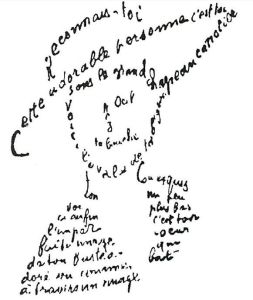 Reconnais-toi
Cette adorable personne c'est toi
Sous le grand chapeau canotier
Oeil
Nez
la bouche
Voici l'ovale de ta figure
Ton
cou exquis
Voi
ci enfin
l'impar
faite image
de ton buste a
doré vu comme
à travers un nuage
un peu
plus bas
c'est ton
coeur
qui
bat